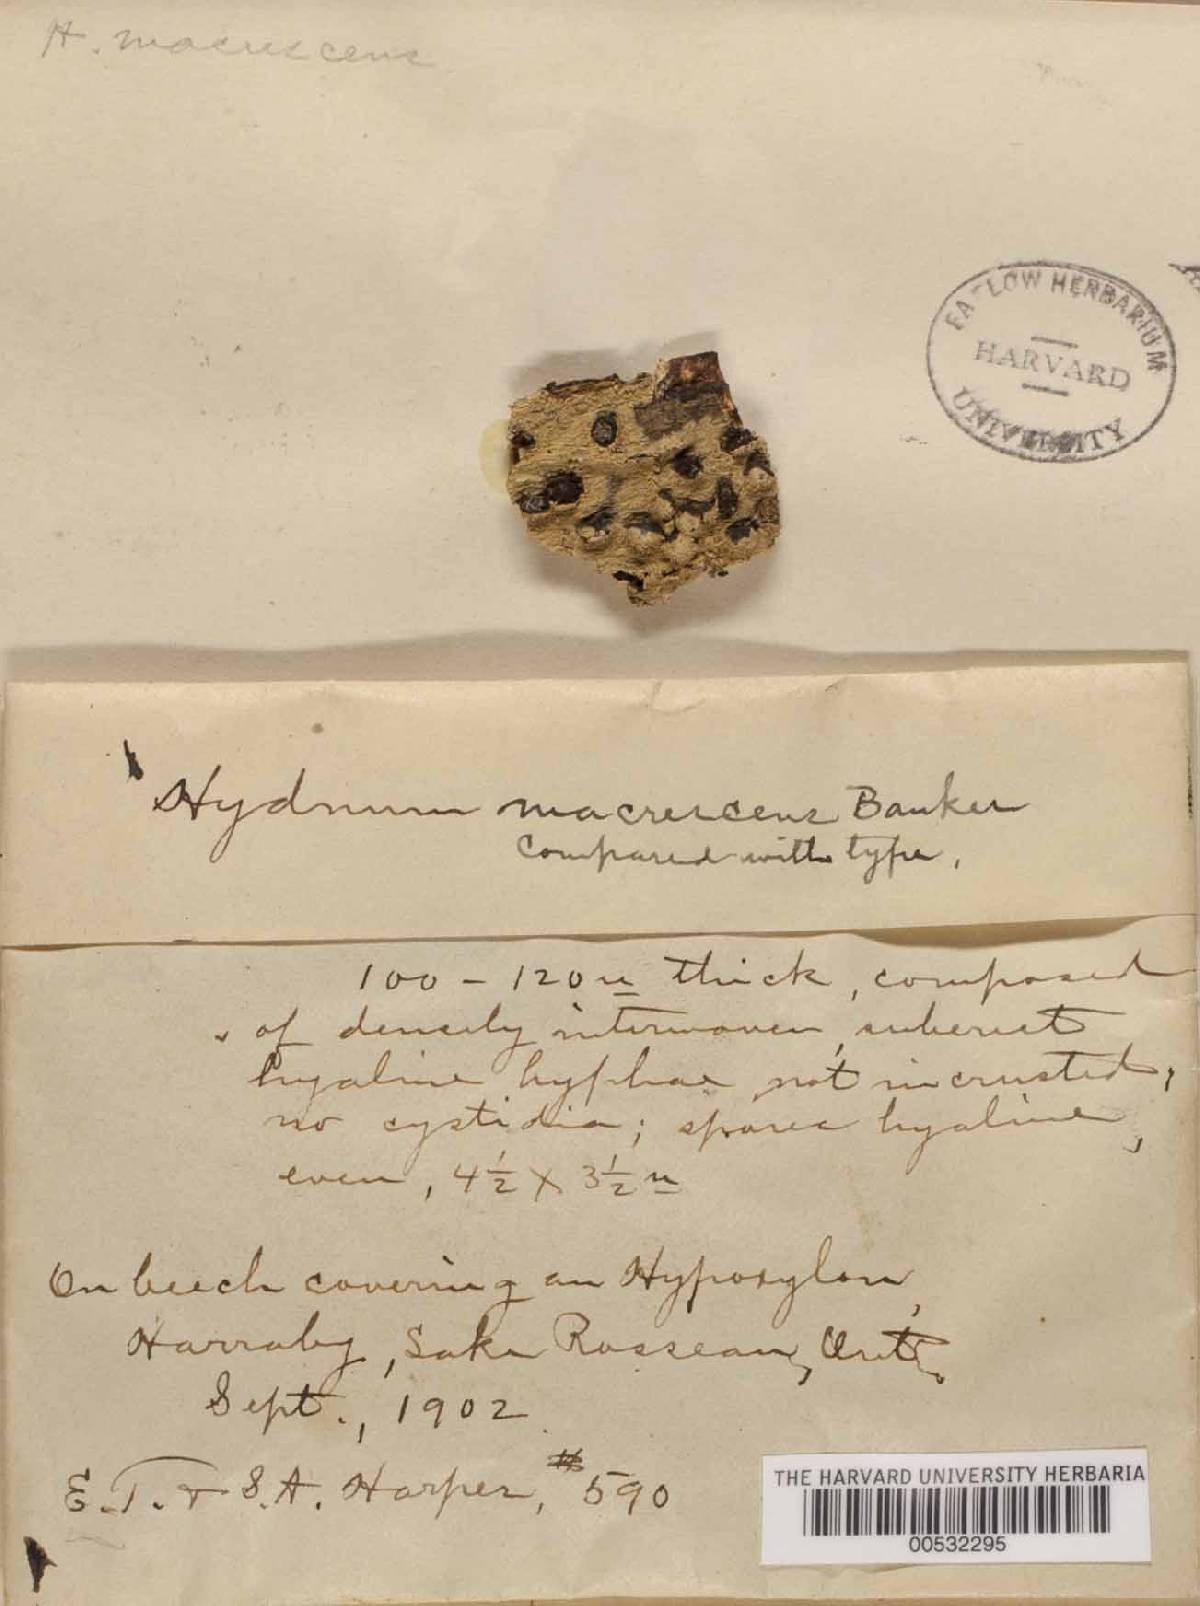 H. macrescens
FARLOW HERBARIUM
HARVARD
UNIVERSITY
Hydnum macrescens Banker
Compared with type.
100 - 120 u thick, composed
of densely interwoven, suberect
hyaline hyphae, not incrusted,
no cystidia; spores hyaline,
even, 4½ X 3½ u
On beech covering an Hypoxylon,
Harraby, Lake Rosseau, Ont.
Sept., 1902
E. T. & S. A. Harper, # 590
THE HARVARD UNIVERSITY HERBARIA
00532295